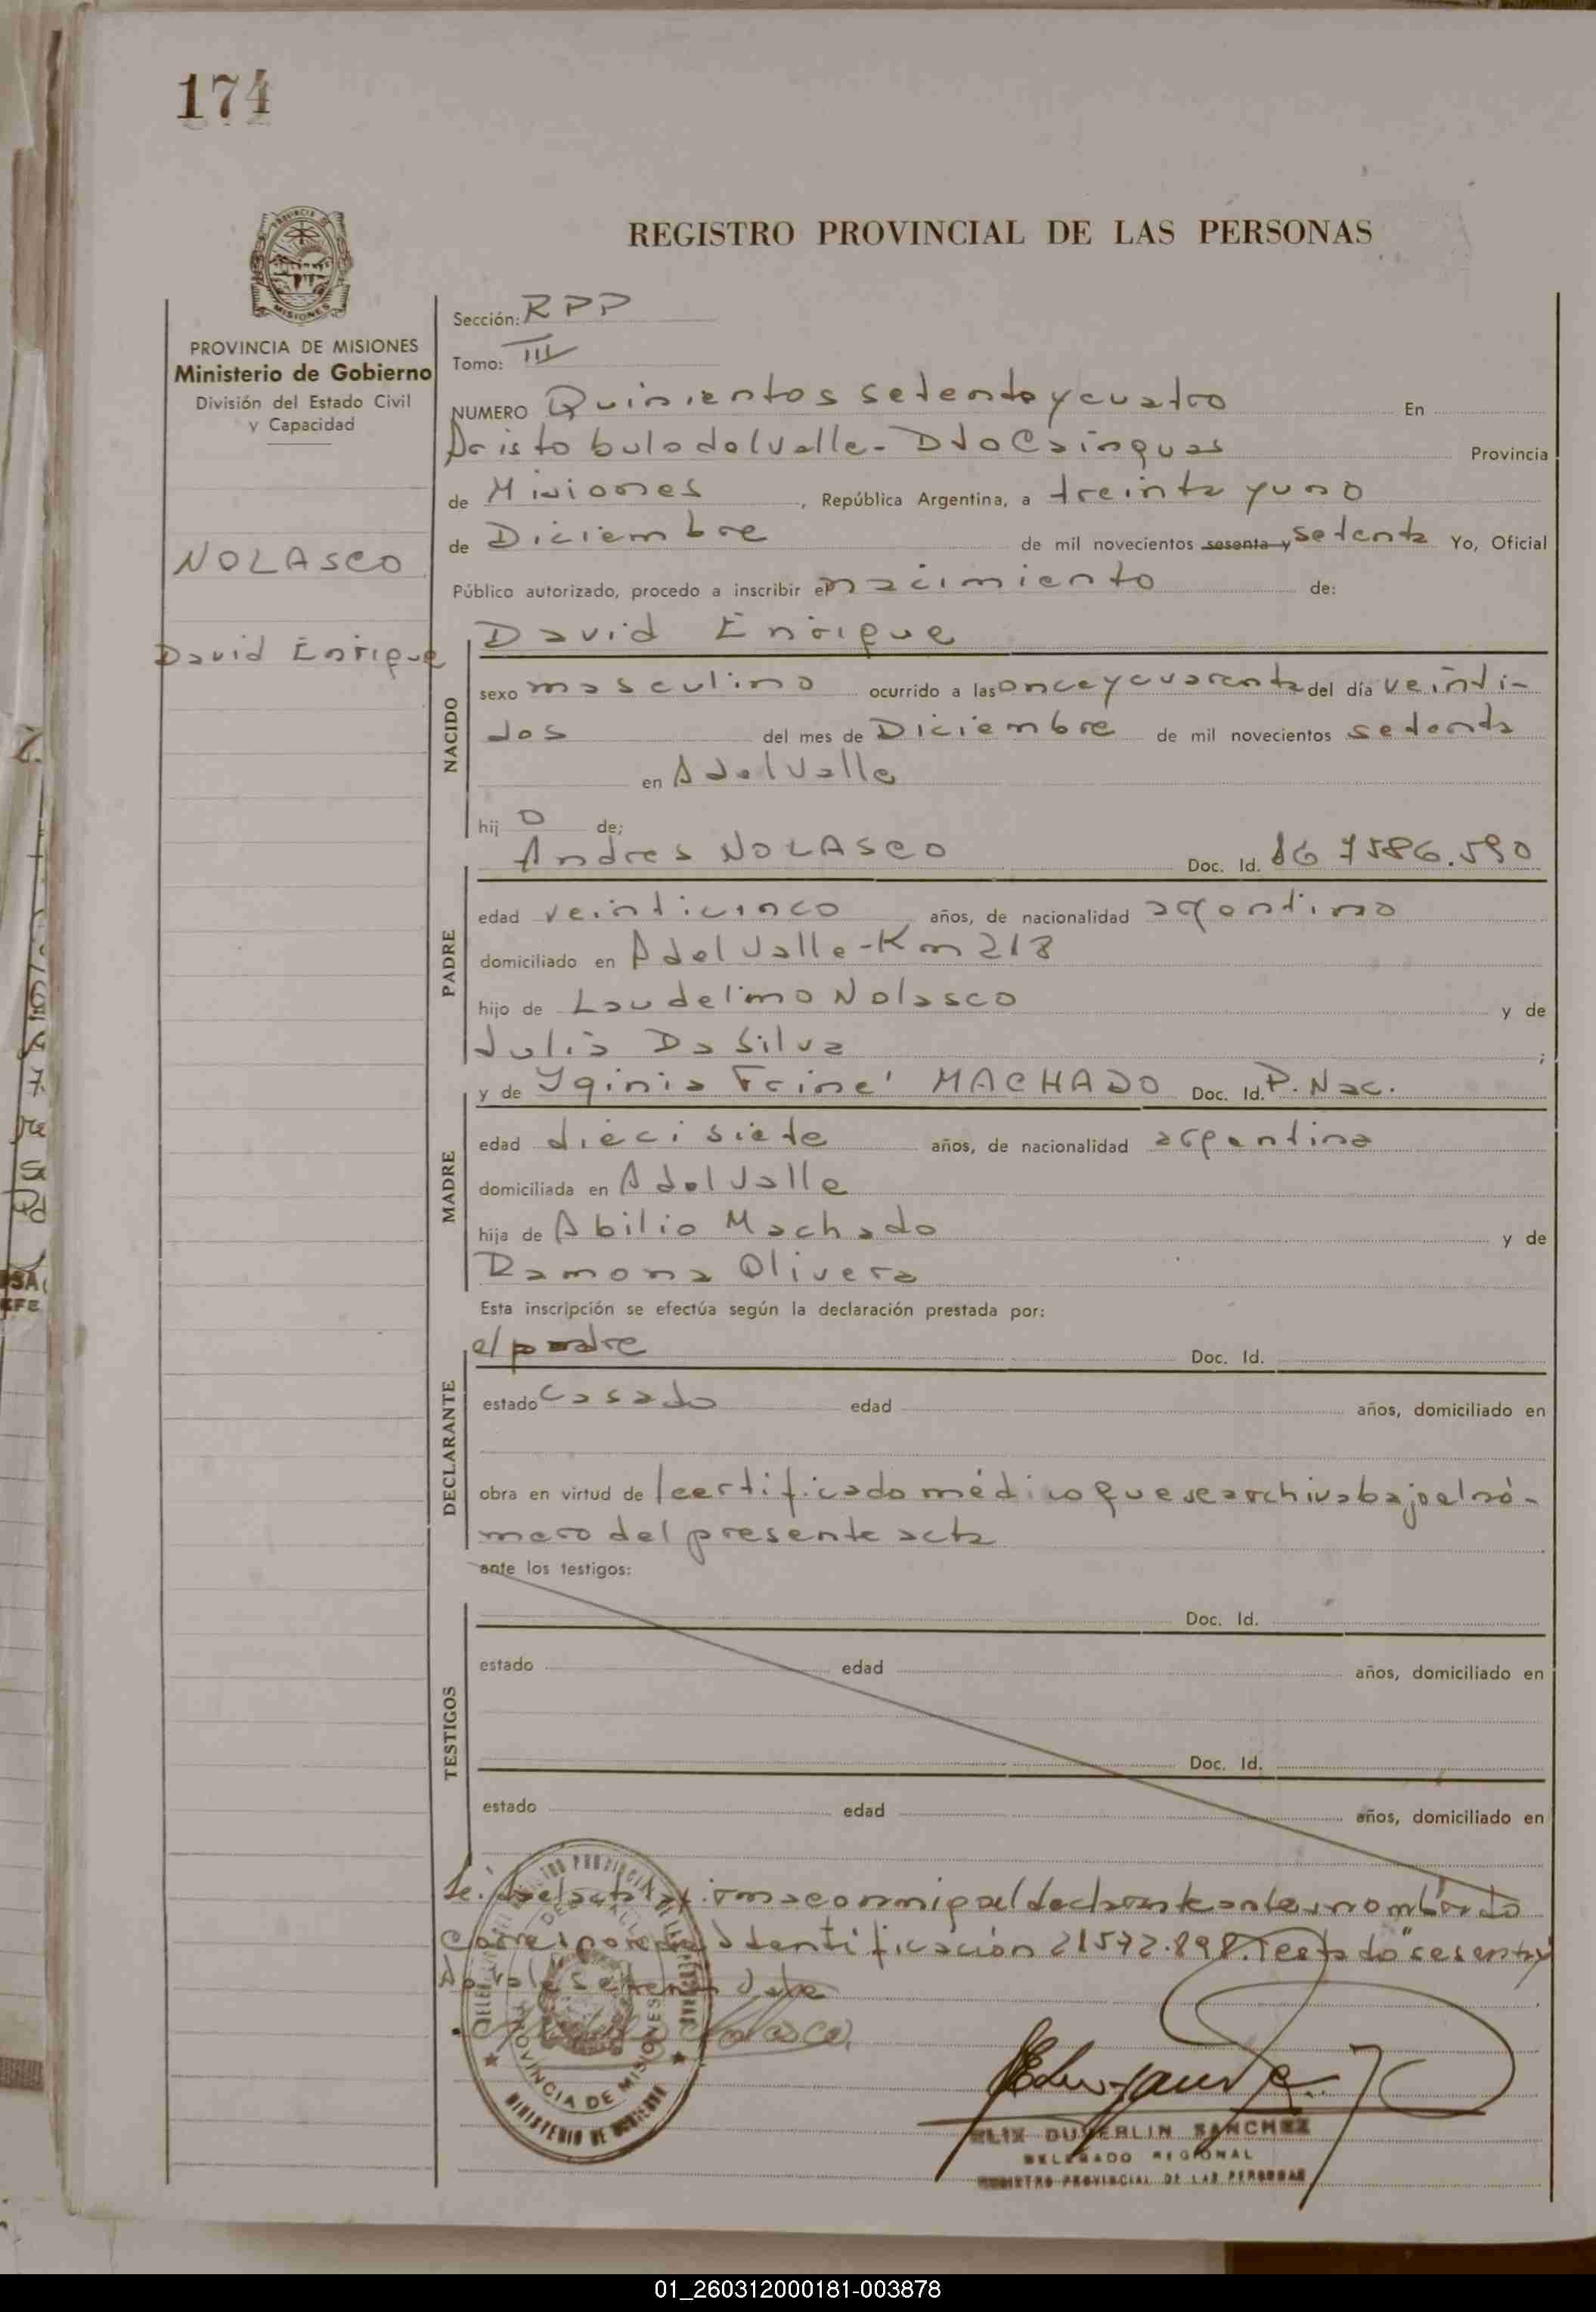 174
REGISTRO PROVINCIAL DE LAS PERSONAS
PROVINCIA DE MISIONES
Ministerio de Gobierno
División del Estado Civil
y Capacidad
NOLASCO
David Enrique
Sección: RPP
Tomo: III
NUMERO Quinientos setenta y cuatro En
Aristobulo del Valle - Dto Cainguas Provincia
de Misiones, República Argentina, a treinta y uno
de Diciembre de mil novecientos sesenta y setenta Yo, Oficial
Público autorizado, procedo a inscribir el nacimiento de:
David Enrique
NACIDO
sexo masculino ocurrido a las once y cuarenta del día veinti-
dos del mes de Diciembre de mil novecientos setenta
en A del Valle
hij o de;
Andres NOLASCO Doc. Id. 7586.590
PADRE
edad veinticinco años, de nacionalidad argentino
domiciliado en A del Valle - Km 218
hijo de Laudelino Nolasco y de
Julia Da Silva ;
y de Yginia Irine MACHADO Doc. Id. P. Nac.
MADRE
edad diecisiete años, de nacionalidad argentina
domiciliada en A del Valle
hija de Abilio Machado y de
Ramona Olivera
Esta inscripción se efectúa según la declaración prestada por:
el padre Doc. Id.
DECLARANTE
estado casado edad años, domiciliado en
obra en virtud de l certificado médico que se archiva bajo el nú-
mero del presente acta
ante los testigos:
Doc. Id.
TESTIGOS
estado edad años, domiciliado en
Doc. Id.
estado edad años, domiciliado en
Leída el acta la firma conmigo el declarante antes nombrado
Corresponde Identificación 21572.898. Testado "sesenta y"
No vale setenta Vale
Nolasco
PROVINCIA DE MISIONES
MINISTERIO DE GOBIERNO
SANCHEZ
DELEGADO REGIONAL
REGISTRO PROVINCIAL DE LAS PERSONAS
01_260312000181-003878